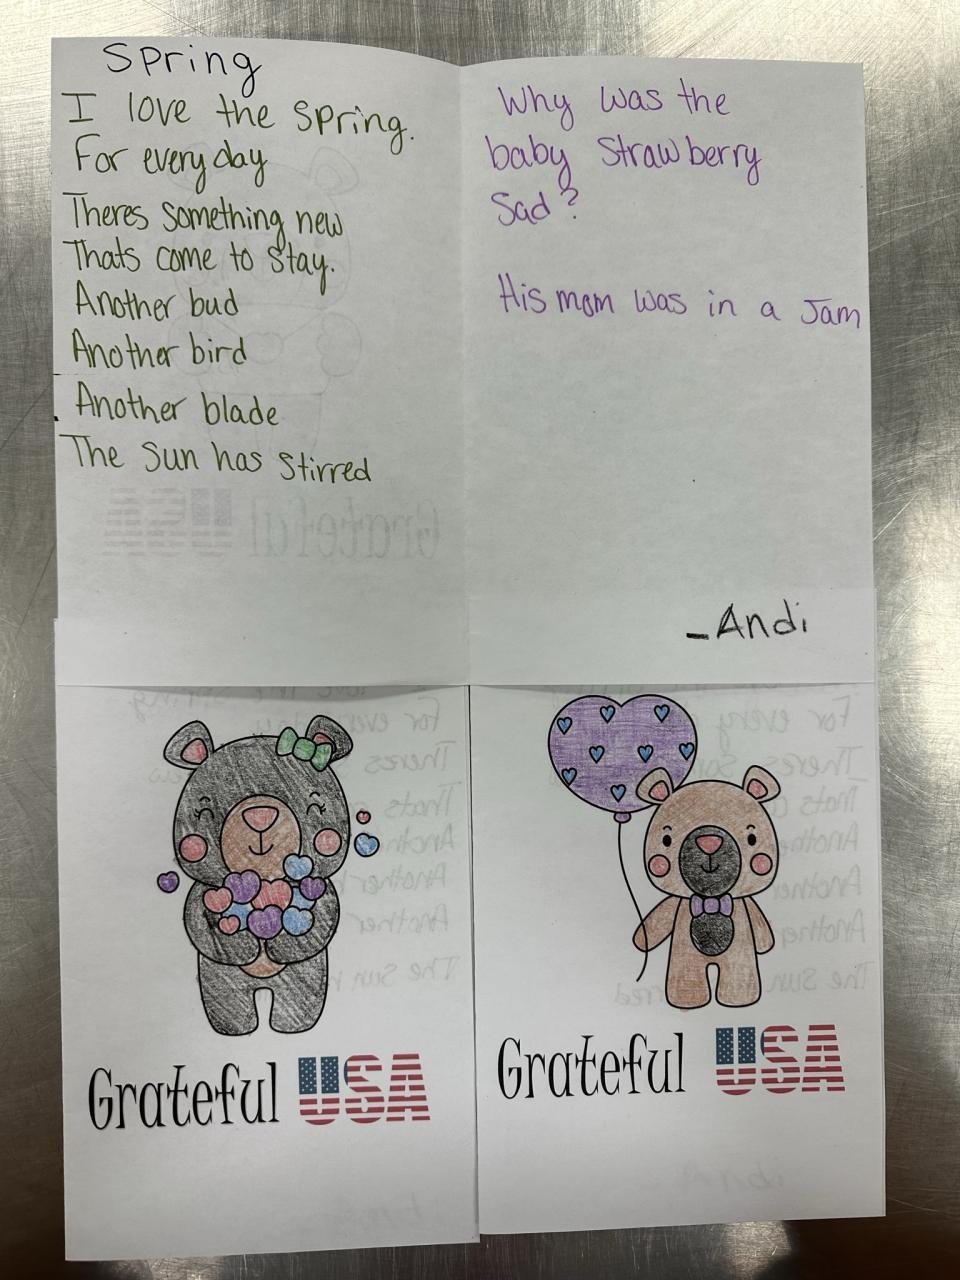 Spring
I love the Spring.
For every day
Theres something new
Thats come to stay.
Another bud
Another bird
Another blade
The Sun has Stirred
Why was the
baby Strawberry
Sad?
His mom was in a Jam
-Andi
Grateful USA
Grateful USA